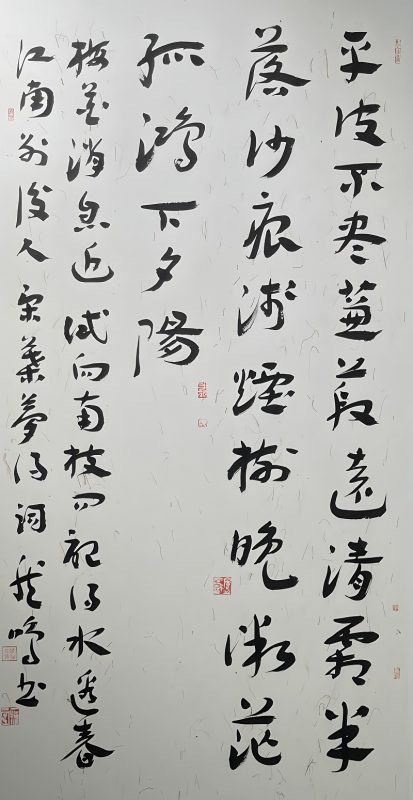 平波不尽蒹葭遠清霜半
落沙痕淺煙樹晚微茫
孤鴻下夕陽
梅花消息近试向南枝问記得水邊春
江南别後人宋葉夢得詞鳴书